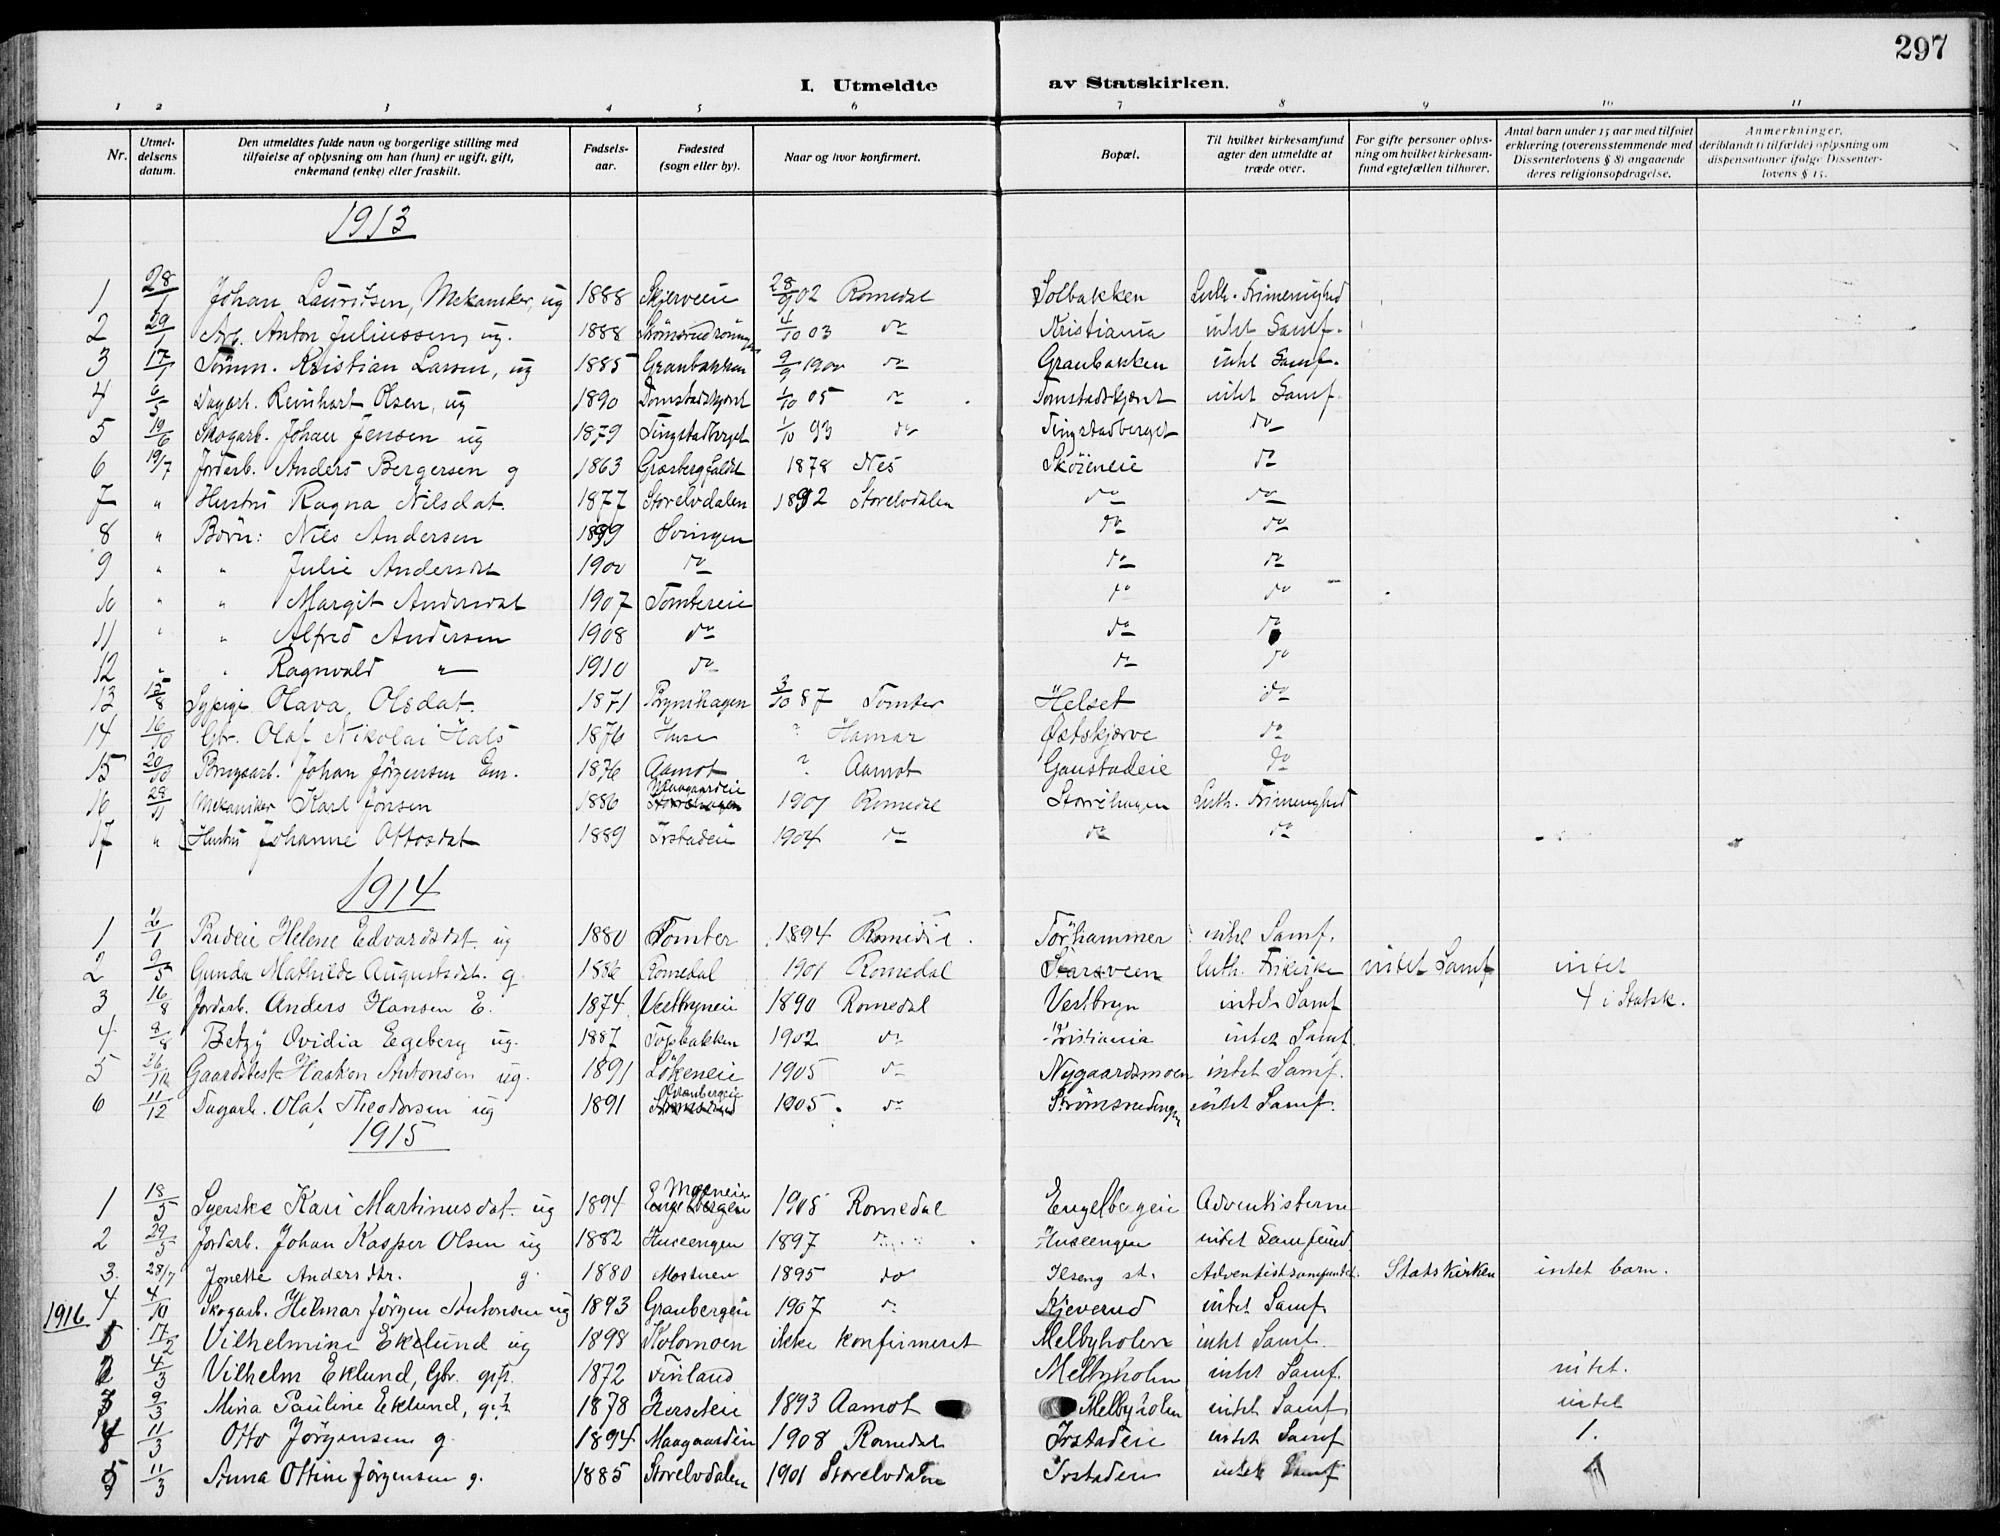 297
I. Utmeldte av Statskirken.
1 2 3 4 5 6 7 8 9 10 11
Nr. | Utmeldelsens datum. | Den utmeldtes fulde navn og borgerlige stilling med tilføielse af oplysning om han (hun) er ugift, gift, enkemand (enke) eller fraskilt. | Fødselsaar. | Fødested (sogn eller by). | Naar og hvor konfirmert. | Bopæl. | Til hvilket kirkesamfund agter den utmeldte at træde over. | For gifte personer oplysning om hvilket kirkesamfund egtefællen tilhører. | Antal barn under 15 aar med tilføiet erklæring (overensstemmende med Dissenterlovens § 8) angaaende deres religionsopdragelse. | Anmerkninger, deriblandt (i tilfælde) oplysning om dispensationer ifølge Dissenterlovens § 15.
1913
1 28/1 Johan Lauritsen, Mekaniker, ug 1888 Skjerveie 28/9 02 Romedal Solbakken Luth. Frimenighed
2 29/1 Arb. Anton Juliussen, ug. 1888 03 do Kristiania intet Samf.
3 17/ Tömm. Kristian Larsen, ug 1885 Graubakken 9/9 1900 do Graubakken intet Samf.
4 6/5 Dagarb. Reinhart Olsen, ug 1890 Tomstadskjærnet 1/10 05 do intet Samf.
5 19/6 Skogarb. Johan Jensen ug 1879 Tingstadberget 1/10 93 do Tingstadberget do
6 19/7 Jordarb. Anders Bergersen g 1863 1878 Nes Sköieneie do
7 " Hustru Ragna Nilsdat. 1877 Storelvdalen 1892 Storelvdalen do do
8 " Börn: Nils Andersen 1899 Svingen do do
9 " " Julie Andersdat 1900 do do do
10 " " Margit Andersdat 1907 Tomtereie do do
11 " " Alfred Andersen 1908 do do do
12 " " Ragnvald " 1910 do do do
13 15/8 Sypige Olava Olsdat. 1871 Brynihagen 3/10 87 Tomter Helset do
14 16/10 Gbr. Olaf Nikolai Hals 1876 Huse ? Hamar Østskjærve do
15 20/10 Brugsarb. Johan Jörgensen Em. 1876 Aamot ? Aamot Gaustadeie do
16 28/11 Mekaniker Karl Jonsen 1886 Maagaardeie 1901 Romedal Storrehagen Luth. Frimenighed
17 " Hustru Johanne Ottosdat 1889 Irstadeie 1904 do do do
1914
1 2/1 Helene Edvardsdat. ug 1880 Tomter 1894 Romedal Torhammer intet Samf.
2 9/5 Gunda Mathilde Augustsdat. g 1886 Romedal 1901 Romedal Starsveen luth. Frikirke intet Samf intet
3 16/8 Jordarb. Anders Hansen E. 1874 Vestbryneie 1890 Romedal Vestbryn intet Samf 4 i Statsk.
4 8/8 Betzy Ovidia Egeberg ug. 1887 Topbakken 1902 do Kristiania intet Samf.
5 26/10 Gaardsbest. Haakon Antonsen ug. 1891 Lökeneie 1905 do Nygaardsmoen intet Samf.
6 11/12 Dagarb. Olaf Theodorsen ug 1891 Graubergeie 1905. do intet Samf.
1915
1 18/5 Syerske Kari Martinusdat. ug 1894 1908 Romedal Engelbergeie Adventisterne
2 29/5 Jordarb. Johan Kasper Olsen ug 1882 Huseengen 1897 do Huseengen intet Samfund
3. 28/7 Jonette Andersdtr. g. 1880 Mostuen 1895 do Ilseng st. Adventistsamfundet. Statskirken intet barn.
4 4/10 Skogarb. Hilmar Jörgen Antonsen ug 1893 Graubergeie 1907 do Kjeverud intet Samf.
1916
17/2 Vilhelmine Eklund ug 1898 Kolomoen ikke konfirmeret Melbyholen intet Samf.
2 4/3 Vilhelm Eklund, Gbr. gift. 1872 Finland Melbyholm intet Samf. intet.
3 9/3 Mina Pauline Eklund, gift 1878 Hersdeie 1893 Aamot Melbyholen intet Samf. intet
4 11/3 Otto Jörgensen g. 1894 Maagaardeie 1908 Romedal Irstadeie intet Samf 1.
5 11/3 Anna Ottine Jörgensen g. 1885 Storelvdalen 1901 Storelvdalen Irstadeie intet Samf 1